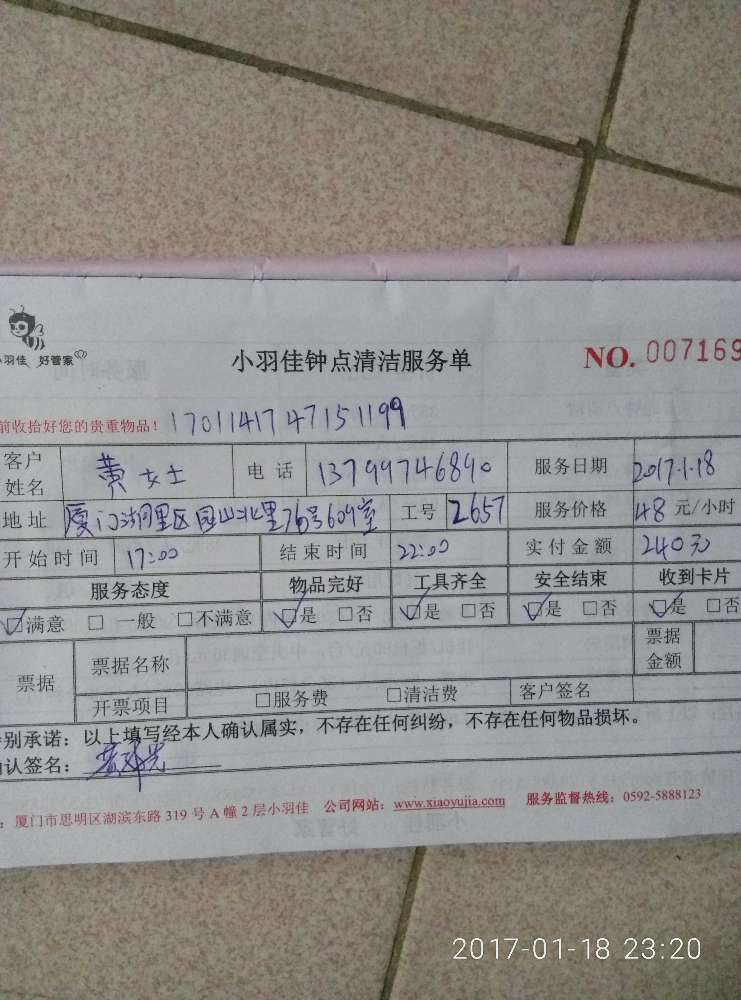 小羽佳 好管家
小羽佳钟点清洁服务单
NO. 007169
前收拾好您的贵重物品! 1701141747151199
客户姓名 黄女士 电话 13799746890 服务日期 2017.1.18
地址 厦门湖里区园山北里76号609室 工号 2657 服务价格 48 元/小时
开始时间 17:00 结束时间 22:00 实付金额 240元
服务态度 物品完好 工具齐全 安全结束 收到卡片
☑满意 □ 一般 □不满意 ☑是 □否 ☑是 □否 ☑是 □否 ☑是 □否
票据 票据名称 票据金额
开票项目 □服务费 □清洁费 客户签名
别承诺：以上填写经本人确认属实，不存在任何纠纷，不存在任何物品损坏。
认签名：
：厦门市思明区湖滨东路 319 号 A 幢 2 层小羽佳 公司网站：www.xiaoyujia.com 服务监督热线：0592-5888123
2017-01-18 23:20